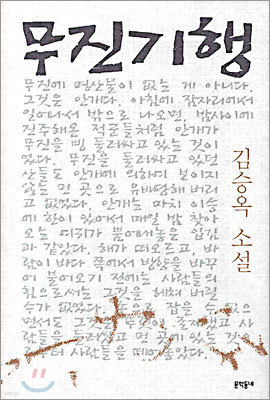 무진기행
무진에 명산물이 없는 게 아니다.
그것은 안개다. 아침에 잠자리에서
일어나서 밖으로 나오면, 밤사이에
진주해온 적군들처럼 안개가
무진을 삥 둘러싸고 있는 것이
었다. 무진을 둘러싸고 있던
산들도 안개에 의하여 보이지
않는 먼 곳으로 유배당해 버리
고 없었다. 안개는 마치 이승
에 한이 있어서 매일 밤 찾아
오는 여귀가 뿜어내놓은 입김
과 같았다. 해가 떠오르고, 바
람이 바다 쪽에서 방향을 바꾸
어 불어오기 전에는 사람들의
힘으로써는 그것을 헤쳐 버릴
수가 없었다. 손으로 잡을 수 없으
면서도 그것은 존재했고 사
람들을 둘러쌌고 먼 곳에 있는 것으
로부터 사람들을 떼어놓았다.
김승옥 소설
문학동네
YES24